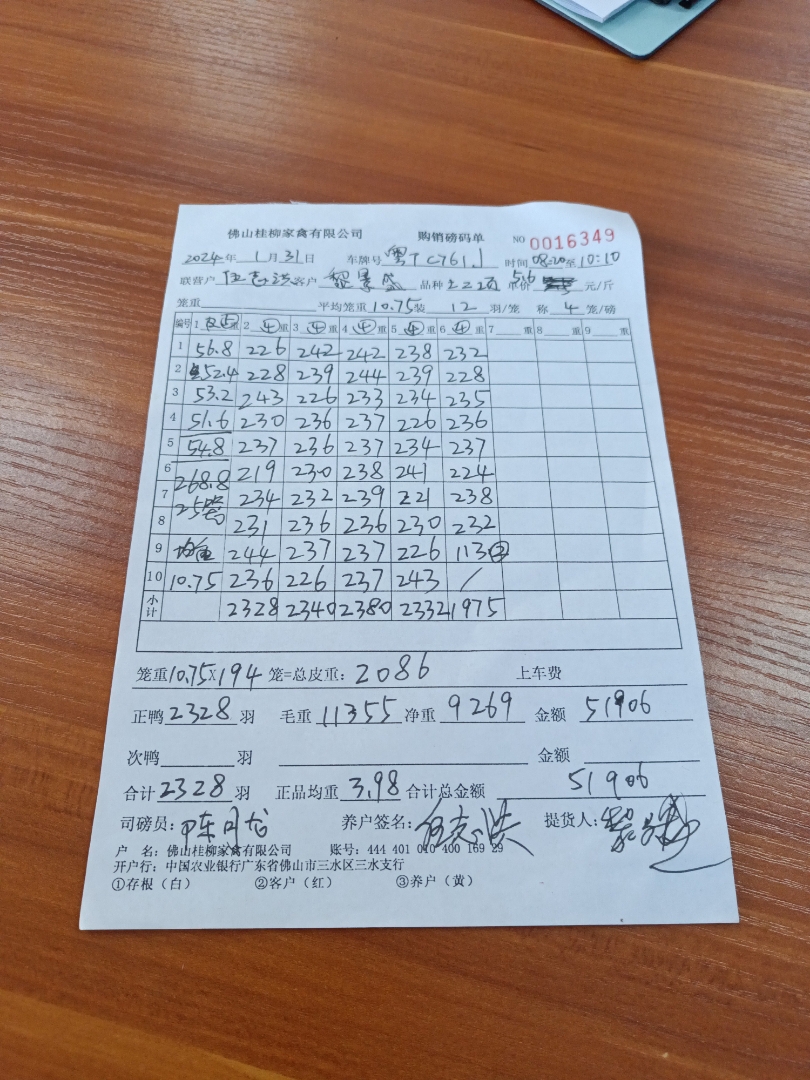 佛山桂柳家禽有限公司 购销磅码单 NO 0016349
2024年 1月31日 车牌号 粤TC761 时间 08:20至10:10
联营户 客户 黎景盛 品种 单价 5.6 元/斤
笼重 平均笼重10.75装 12 羽/笼 称 4 笼/磅
编号 1 皮占重 2 ④重 3 ④重 4 ④重 5 ④重 6 ④重 7 重 8 重 9 重
1 56.8 226 242 242 238 232
2 52.4 228 239 244 239 228
3 53.2 243 226 233 234 235
4 51.6 230 236 237 226 236
5 54.8 237 236 237 234 237
6 268.8 219 230 238 241 224
7 25笼 234 232 239 221 238
8 231 236 236 230 232
9 均重 244 237 237 226 113②
10 10.75 236 226 237 243 /
小计 2328 2340 2380 2332 1975
笼重10.75X194 笼=总皮重:2086 上车费
正鸭2328羽 毛重11355净重9269金额51906
次鸭 羽 金额
合计2328羽 正品均重3.98合计总金额 51906
司磅员: 养户签名: 提货人:
户 名:佛山桂柳家禽有限公司 账号:444 401 010 400 169 29
开户行:中国农业银行广东省佛山市三水区三水支行
①存根(白) ②客户(红) ③养户(黄)